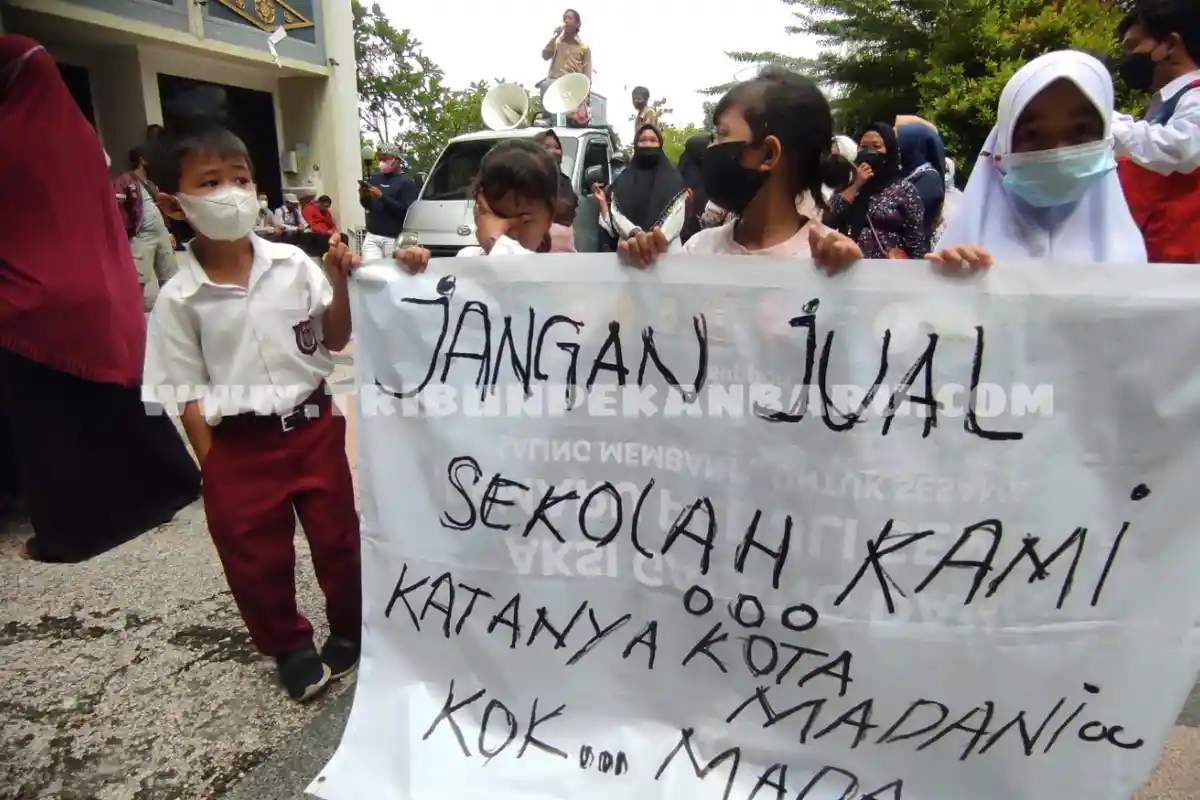 JANGAN JUAL
WWW.TRIBUNPEKANBARU.COM
SEKOLAH KAMI
KATANYA KOTA MADANI
KOK... MADA